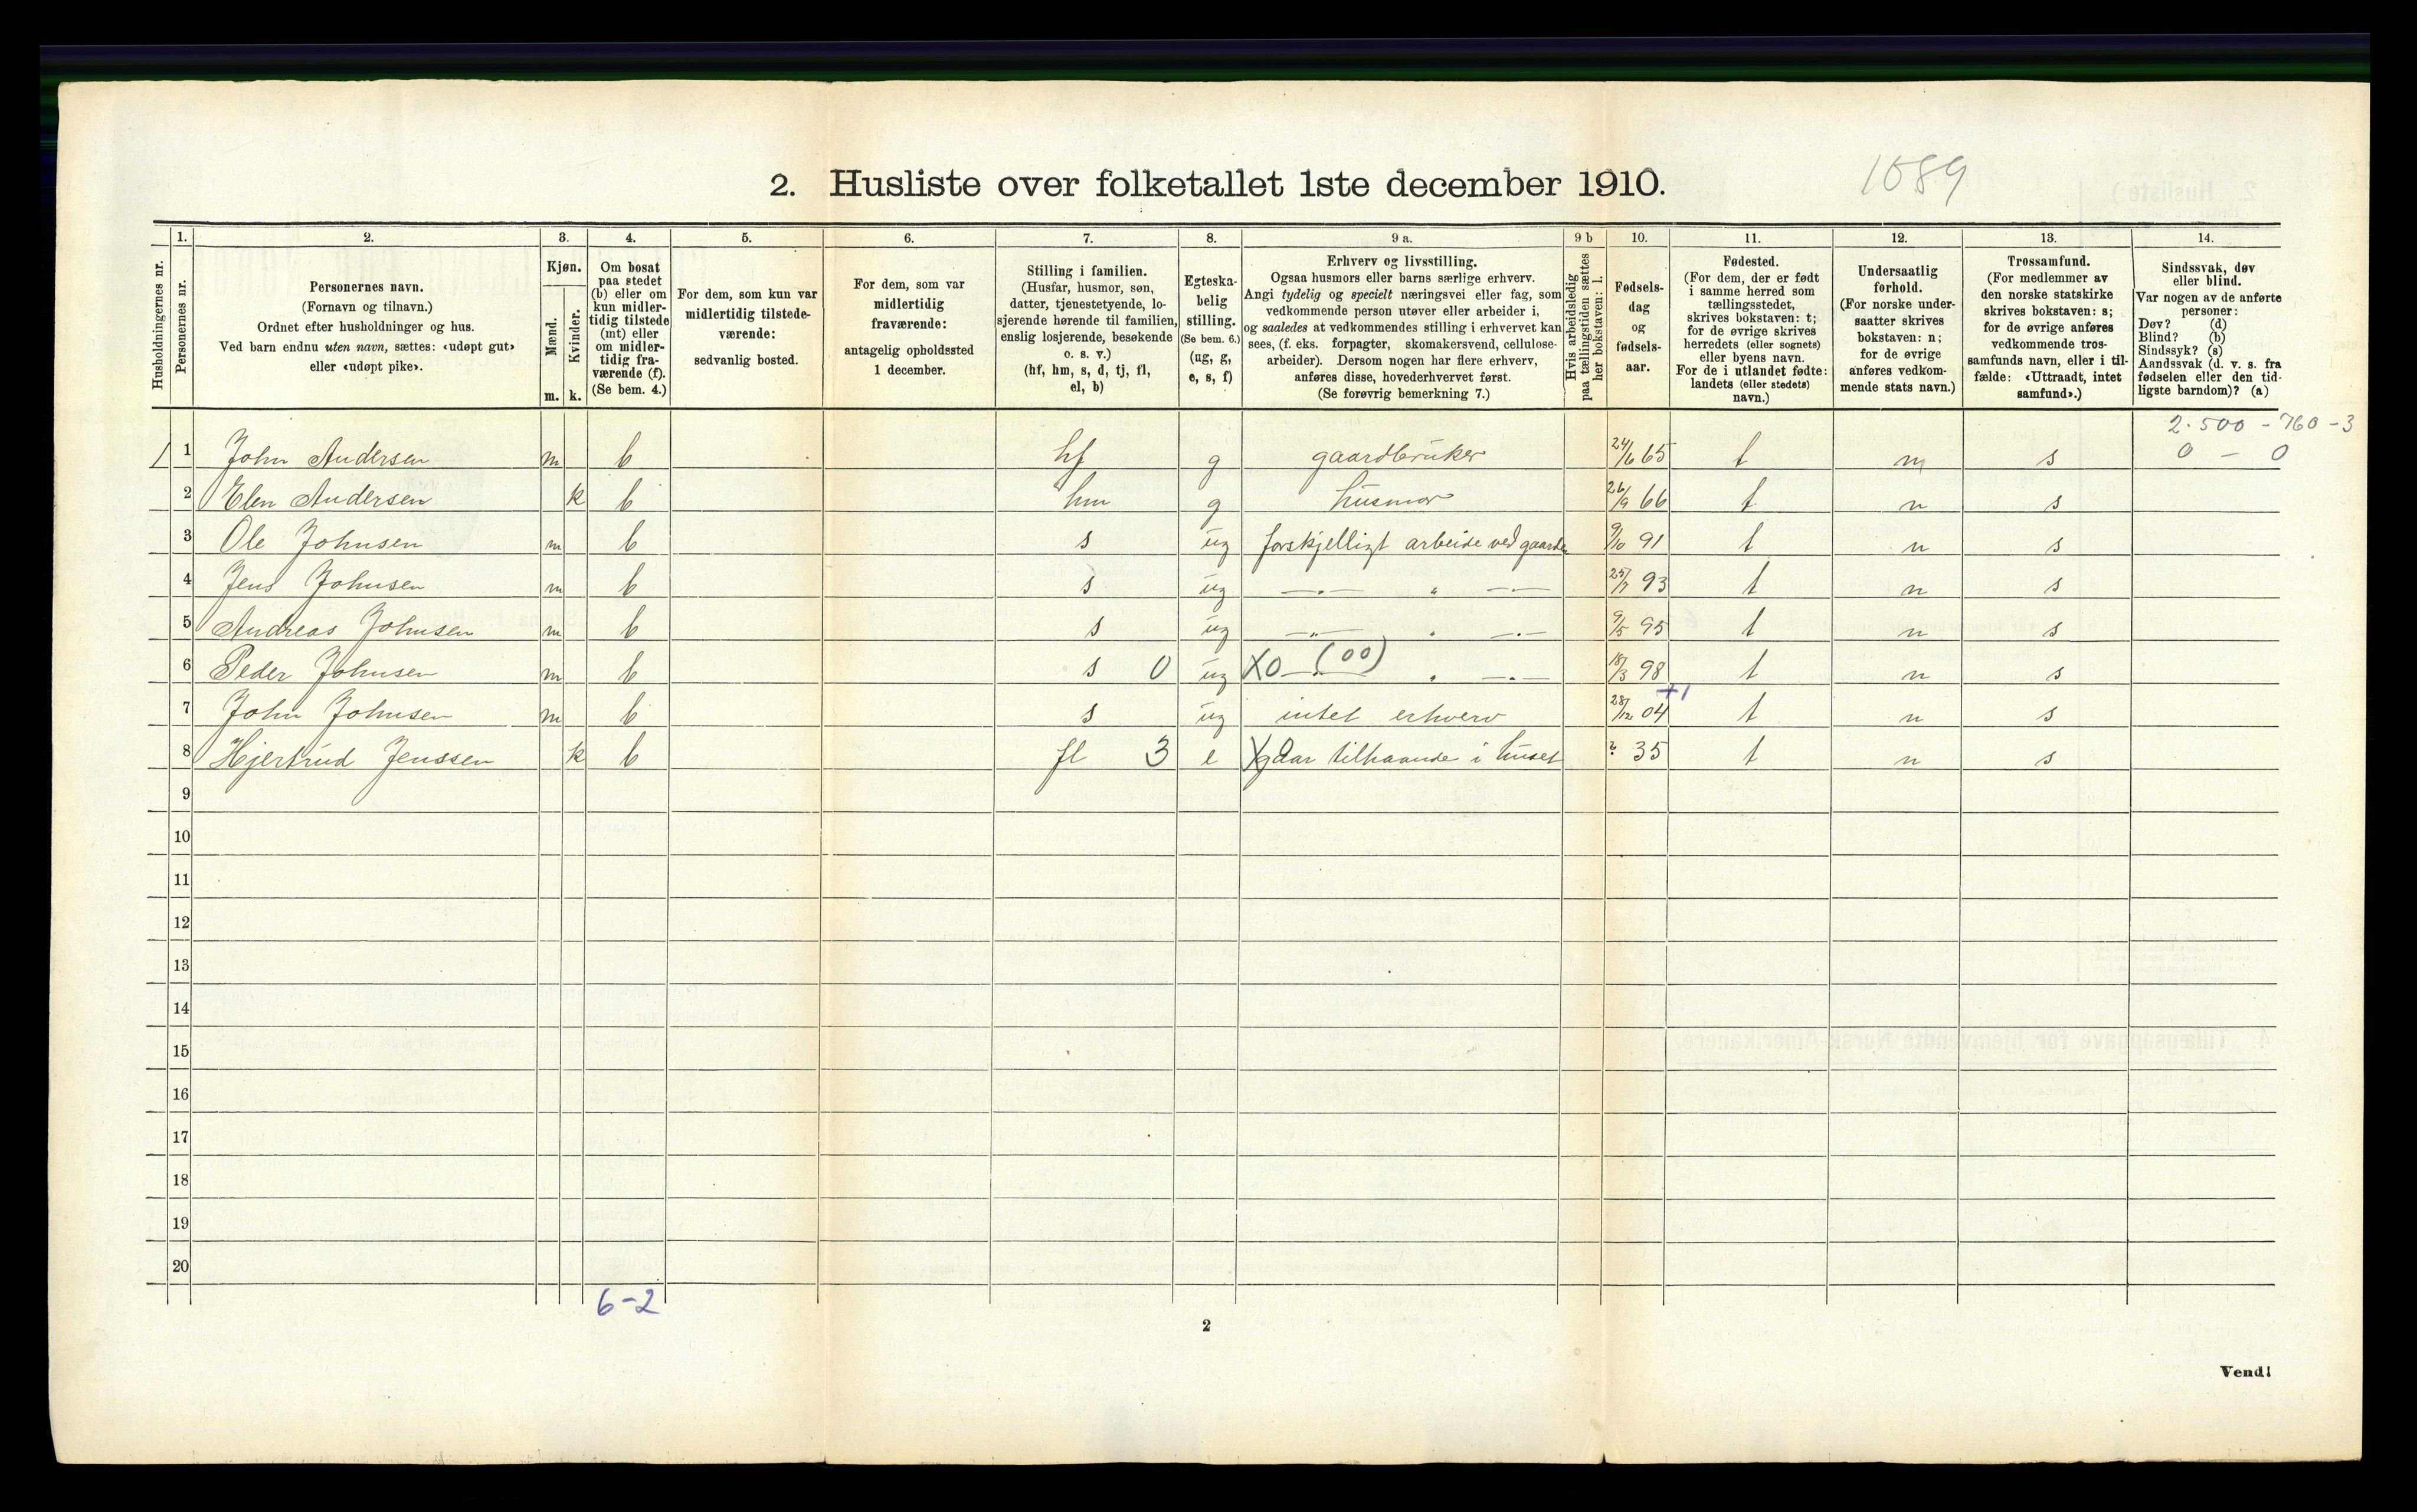 2. Husliste over folketallet 1ste december 1910.
1089
Husholdningernes nr.
1.
Personernes nr.
2.
Personernes navn.
(Fornavn og tilnavn.)
Ordnet efter husholdninger og hus.
Ved barn endnu uten navn, sættes: «udøpt gut»
eller «udøpt pike».
3.
Kjøn.
Mænd.
Kvinder.
m. k.
4.
Om bosat
paa stedet
(b) eller om
kun midler-
tidig tilstede
(mt) eller
om midler-
tidig fra-
værende (f).
(Se bem. 4.)
5.
For dem, som kun var
midlertidig tilstede-
værende:
sedvanlig bosted.
6.
For dem, som var
midlertidig
fraværende:
antagelig opholdssted
1 december.
7.
Stilling i familien.
(Husfar, husmor, søn,
datter, tjenestetyende, lo-
sjerende hørende til familien,
enslig losjerende, besøkende
o. s. v.)
(hf, hm, s, d, tj, fl,
el, b)
8.
Egteska-
belig
stilling.
(Se bem. 6.)
(ug, g,
e, s, f)
9 a.
Erhverv og livsstilling.
Ogsaa husmors eller barns særlige erhverv.
Angi tydelig og specielt næringsvei eller fag, som
vedkommende person utøver eller arbeider i,
og saaledes at vedkommendes stilling i erhvervet kan
sees, (f. eks. forpagter, skomakersvend, cellulose-
arbeider). Dersom nogen har flere erhverv,
anføres disse, hovederhvervet først.
(Se forøvrig bemerkning 7.)
9 b
Hvis arbeidsledig
paa tællingstiden sættes
her bokstaven: l.
10.
Fødsels-
dag
og
fødsels-
aar.
11.
Fødested.
(For dem, der er født
i samme herred som
tællingsstedet,
skrives bokstaven: t;
for de øvrige skrives
herredets (eller sognets)
eller byens navn.
For de i utlandet fødte:
landets (eller stedets)
navn.)
12.
Undersaatlig
forhold.
(For norske under-
saatter skrives
bokstaven: n;
for de øvrige
anføres vedkom-
mende stats navn.)
13.
Trossamfund.
(For medlemmer av
den norske statskirke
skrives bokstaven: s;
for de øvrige anføres
vedkommende tros-
samfunds navn, eller i til-
fælde: «Uttraadt, intet
samfund».)
14.
Sindssvak, døv
eller blind.
Var nogen av de anførte
personer:
Døv? (d)
Blind? (b)
Sindssyk? (s)
Aandssvak (d. v. s. fra
fødselen eller den tid-
ligste barndom)? (a)
2.500 - 760 - 3
1 1 John Andersen m b hf g gaardbruker 24/6 65 t n s 0 - 0
2 Elen Andersen k b hm g husmor 26/9 66 t n s
3 Ole Johnsen m b s ug forskjelligt arbeide ved gaarden 9/10 91 t n s
4 Jens Johnsen m b s ug —"— " —"— 25/7 93 t n s
5 Andreas Johnsen m b s ug —"— " —"— 9/5 95 t n s
6 Peder Johnsen m b s 0 ug X0 —"— (00) " —"— 18/3 98 t n s
+1
7 John Johnsen m b s ug intet erhverv 28/12 04 t n s
8 Hjertrud Jenssen k b fl 3 e X gaar tilhaande i huset ? 35 t n s
9
10
11
12
13
14
15
16
17
18
19
20
6-2
2
Vend!